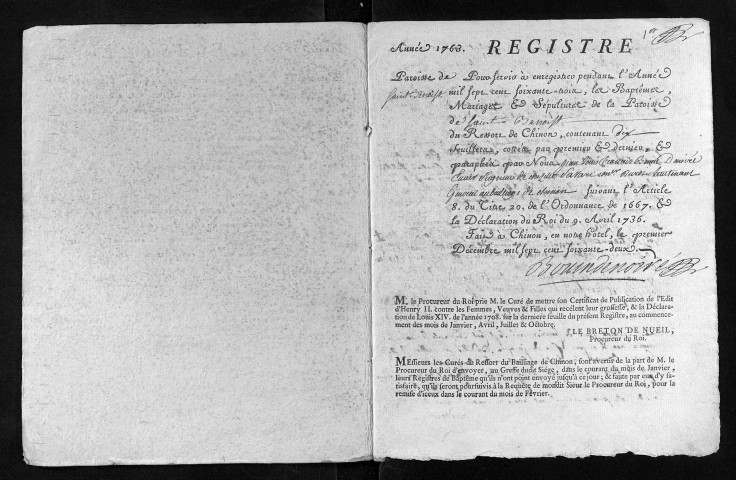 1er
Année 1763. REGISTRE
Paroisse de
Saint Benoist
Pour servir à enregistrer pendant l'Année
mil sept cent soixante-trois, les Baptêmes,
Mariages & Sépultures de la Paroisse
de Saint Benoist
du Ressort de Chinon, contenant dix
feuillets, cottés par premier & dernier, &
paraphés par Nous Jean Louis
Lieutenant
General au bailliage de Chinon suivant l'Article
8. du Titre 20. de l'Ordonnance de 1667. &
la Déclaration du Roi du 9. Avril 1736.
Fait à Chinon, en notre hôtel, le premier
Décembre mil sept cent soixante-deux.
M. le Procureur du Roi prie M. le Curé de mettre son Certificat de Publication de l'Edit
d'Henry II. contre les Femmes, Veuves & Filles qui recélent leur grossesse, & la Déclara-
tion de Louis XIV. de l'année 1708. sur la derniere feuille du présent Registre, au commence-
ment des mois de Janvier, Avril, Juillet & Octobre.
LE BRETON DE NUEIL,
Procureur du Roi.
Messieurs les Curés du Ressort du Bailliage de Chinon, sont avertis de la part de M. le
Procureur du Roi d'envoyer, au Greffe dudit Siége, dans le courant du mois de Janvier,
leurs Registres de Baptême qu'ils n'ont point envoyé jusqu'à ce jour; & faute par eux d'y sa-
tisfaire, qu'ils seront poursuivis à la Requête de mondit Sieur le Procureur du Roi, pour la
remise d'iceux dans le courant du mois de Février.